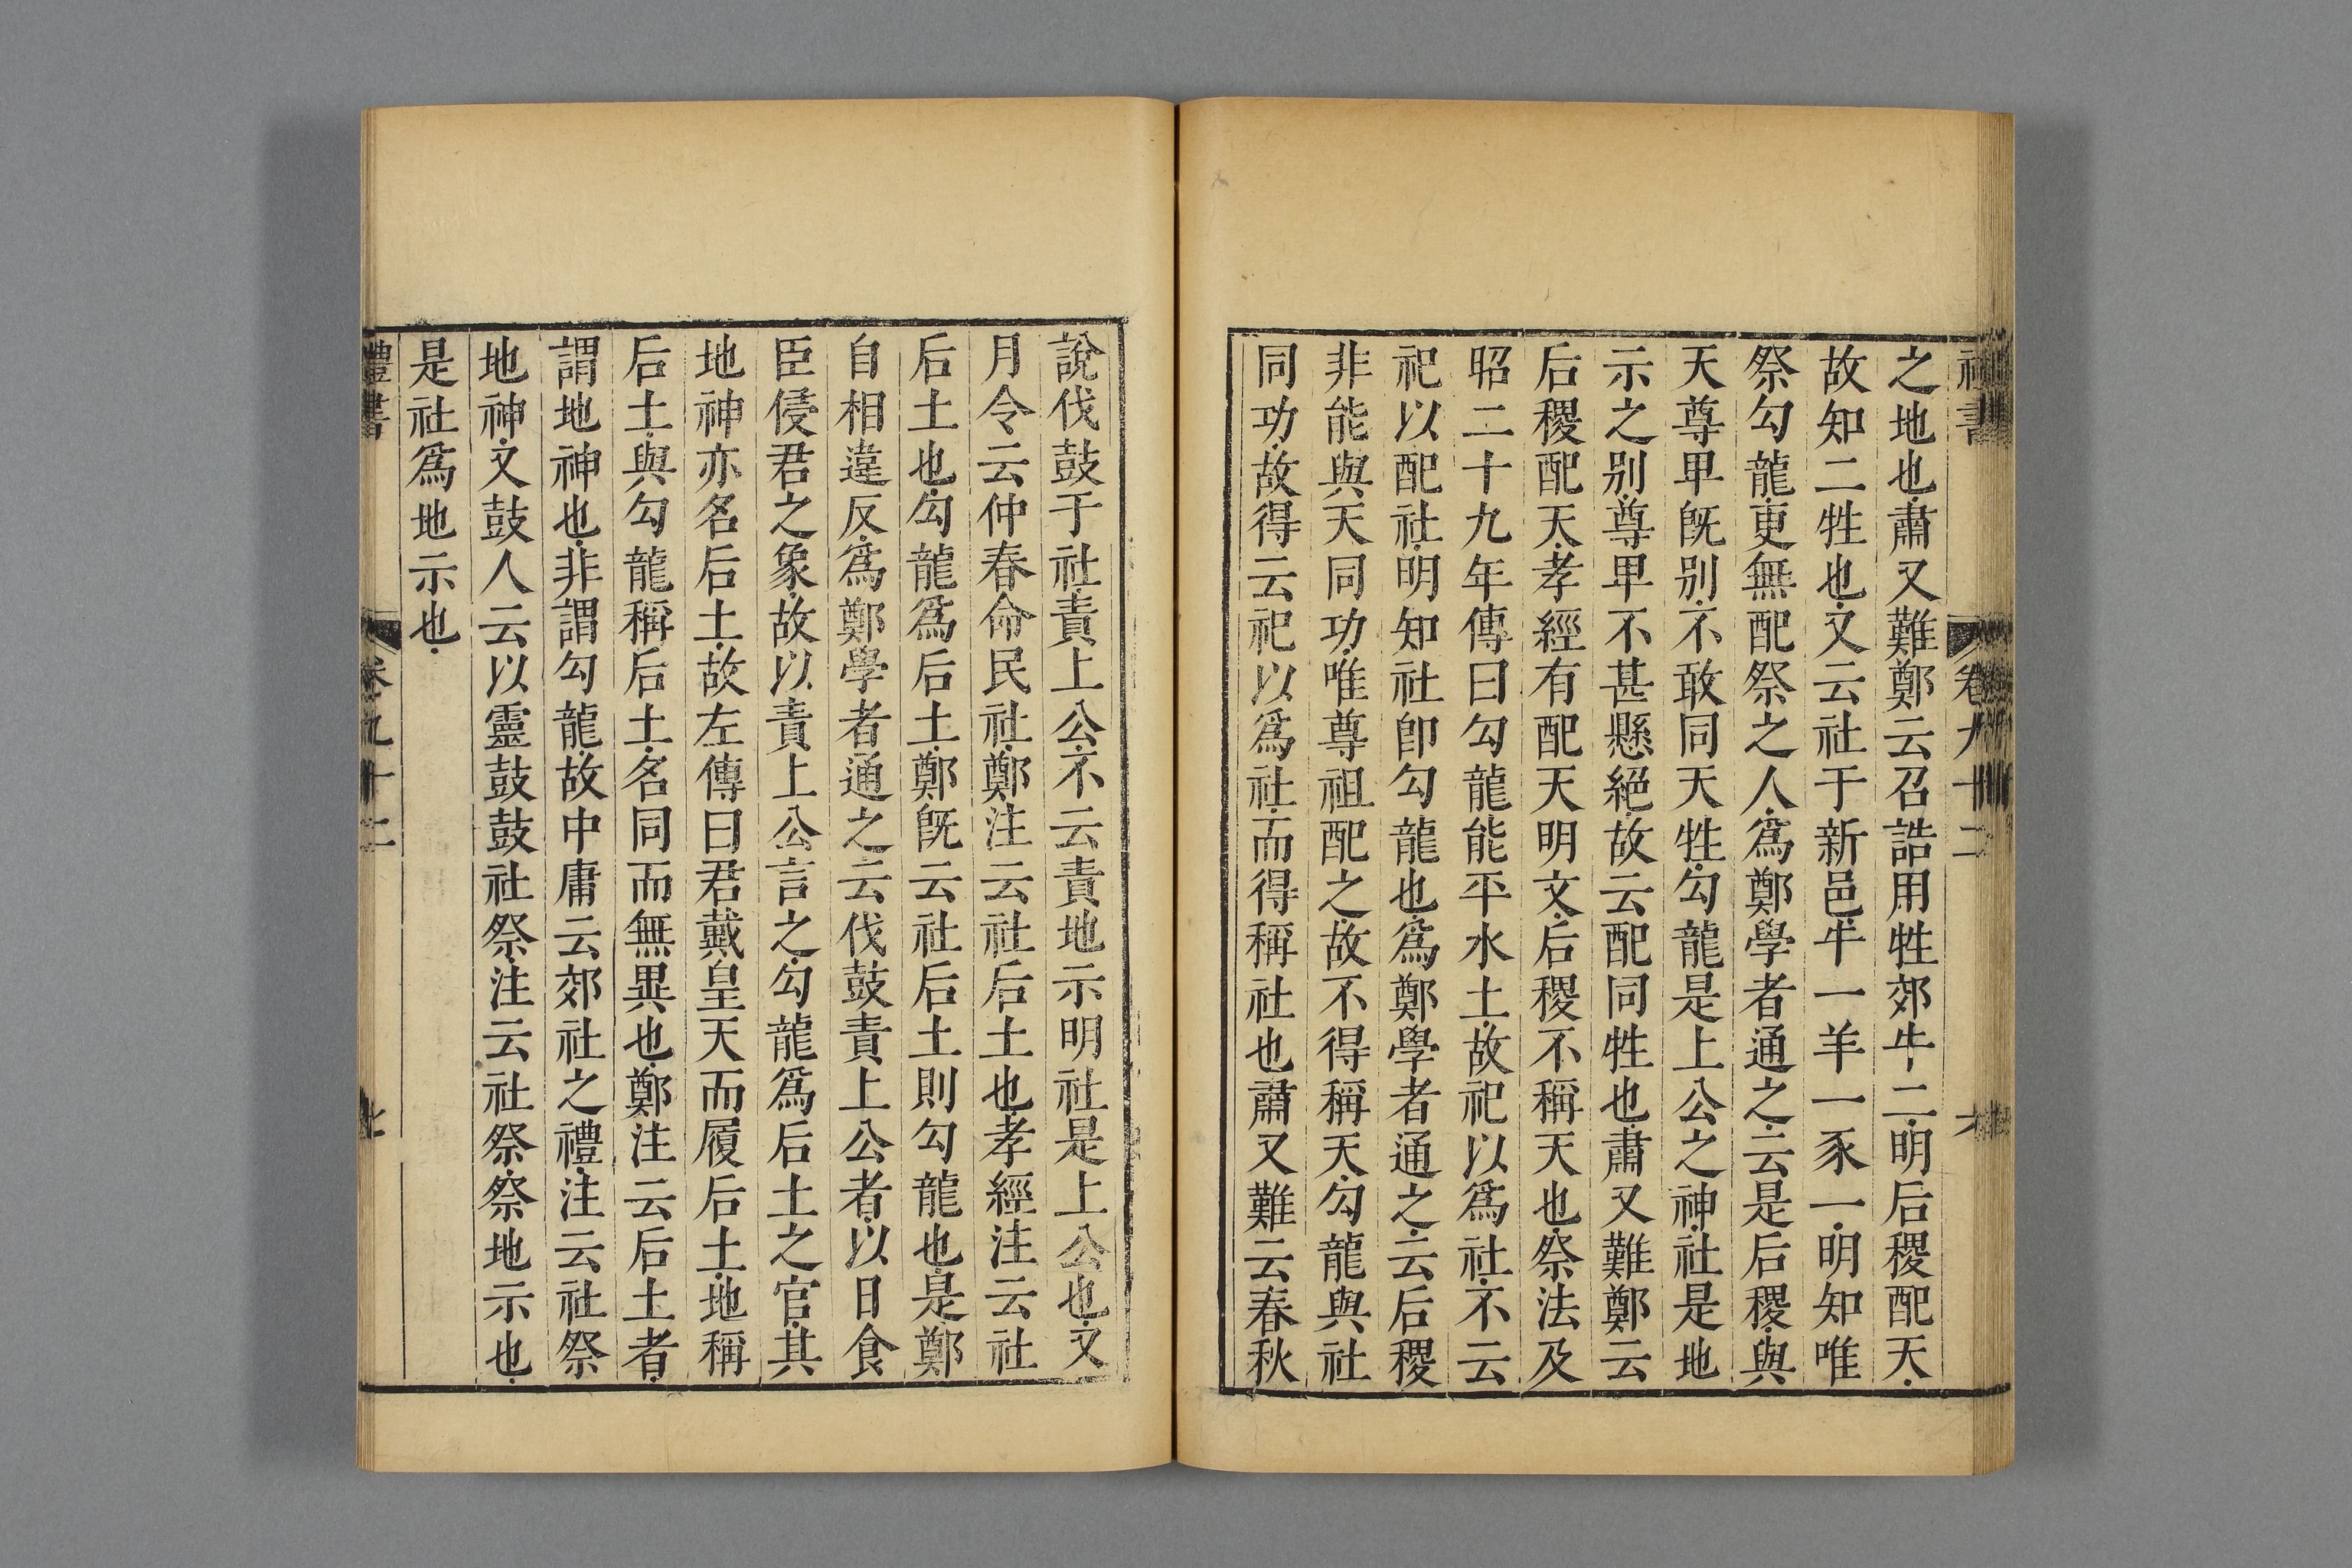 之地也肅又難鄭云召誥用牲郊牛二明后稷配天
故知二牲也又云社于新邑牛一羊一豕一明知唯
祭勾龍更無配祭之人爲鄭學者通之云是后稷與
天尊卑旣别不敢同天牲勾龍是上公之神社是地
示之别尊卑不甚懸絕故云配同牲也肅又難鄭云
后稷配天孝經有配天明文后稷不稱天也祭法及
昭二十九年傳曰勾龍能平水土故祀以爲社不云
祀以配社明知社卽勾龍也爲鄭學者通之云后稷
非能與天同功唯尊祖配之故不得稱天勾龍與社
同功故得云祀以爲社而得稱社也肅又難云春秋
說伐鼓于社責上公不云責地示明社是上公也又
月令云仲春命民社鄭注云社后土也孝經注云社
后土也勾龍爲后土鄭旣云社后土則勾龍也是鄭
自相違反爲鄭學者通之云伐鼓責上公者以日食
臣侵君之象故以責上公言之勾龍爲后土之官其
地神亦名后土故左傳曰君戴皇天而履后土地稱
后土與勾龍稱后土名同而無異也鄭注云后土者
謂地神也非謂勾龍故中庸云郊社之禮注云社祭
地神又鼓人云以靈鼓鼓社祭注云社祭祭地示也
是社爲地示也
禮書 卷九十二